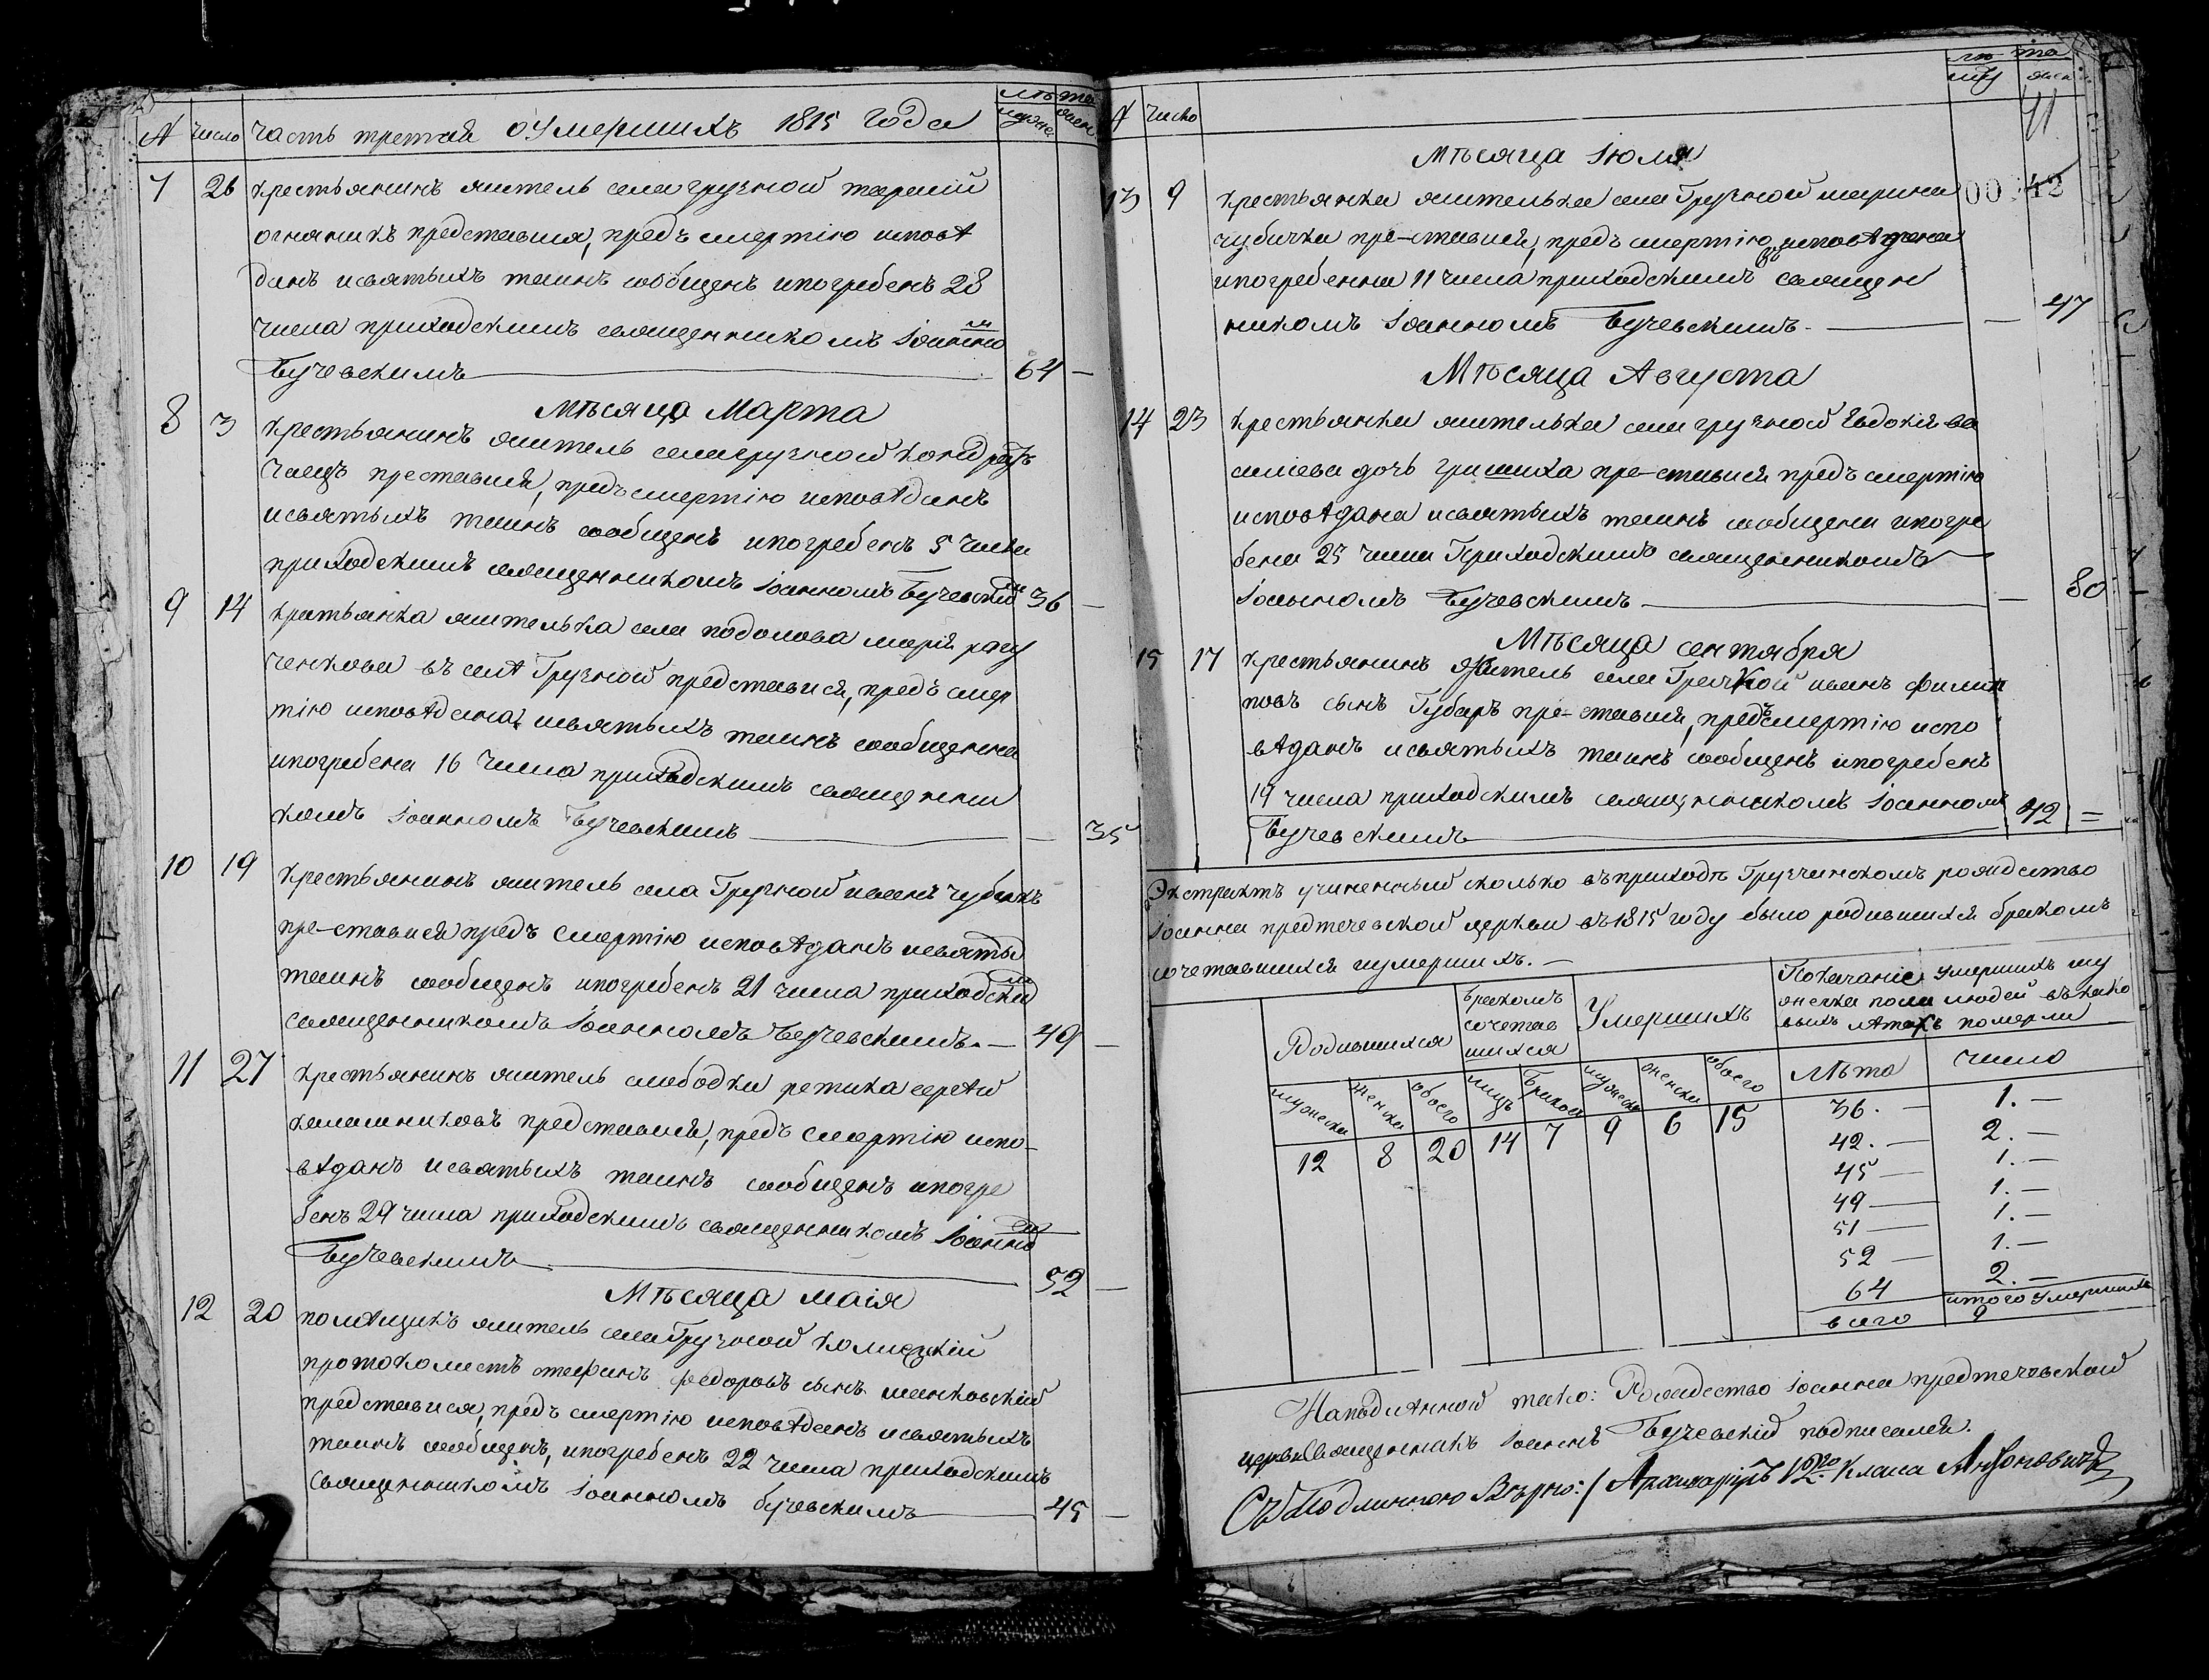 № число часть третая оумершихъ 1815 года лѣта муже. жен.
7 26 крестьянинъ житель села грузкой терений
огняникъ представися, предъ смертію исповѣ
данъ исвятыхъ таинъ сообщенъ ипогребенъ 28
числа приходскимъ священникомъ Іоанном
Бучевскимъ 64 —
Мѣсяца Марта
8 3 крестьянинъ житель села грузкой кондратъ
преставися, предъ смертію исповѣданъ
исвятыхъ таинъ сообщенъ ипогребенъ 5 числа
приходскимъ священникомъ Іоанномъ Бучевским 36 —
9 14 кретьянка жителька села подолова марія
въ селѣ Грузкой представися, предъ смер
тію исповѣдана, исвятыхъ таинъ сообщенна
ипогребена 16 числа приходскимъ священни
комъ Іоанномъ Бучевскимъ — 35
10 19 крестьянинъ житель села Грузкой иванъ чубукъ
пре-ставися предъ смертію исповѣданъ исвяты
таинъ сообщенъ ипогребенъ 21 числа приходским
священникомъ Іоанномъ Бучевскимъ. — 49 —
11 27 крестьянинъ житель слободки ретика сергѣй
калашниковъ представися, предъ смертію испо-
вѣданъ исвятыхъ таинъ сообщенъ ипогре
бенъ 29 числа приходскимъ священникомъ Іоанном
Бучевскимъ 52 —
Мѣсяца маія
12 20 помѣщикъ житель села Грузкой
протоколистъ стефанъ федоровъ сынъ манковскій
представися, предъ смертію исповѣданъ исвятыхъ
таинъ сообщенъ, ипогребенъ 22 числа приходскимъ
священникомъ Іоанномъ бучевскимъ 45 —
№ число лѣта муж жен
41
Мѣсяца Іюля
0042
13 9 крестьянка жителька села Грузкой марина
чубучка пре-ставися, предъ смертію исповѣдана
ипогребенна 11 числа приходскимъ священ
никомъ Іоанномъ Бучевскимъ. — — 47
Мѣсяца Августа
14 23 крестьянка жителька села грузкой Евдокія ва
силіева дочь гришиха пре-ставися предъ смертію
исповѣдана исвятыхъ таинъ сообщена ипогре
бена 25 числа Приходскимъ священникомъ
Іоанномъ Бучевскимъ — 80
Мѣсяца сентября
15 17 крестьянинъ житель села Грузкой иванъ филип
повъ сынъ Губаръ пре-ставися, предъ смертію испо
вѣданъ исвятыхъ таинъ сообщенъ ипогребенъ
19 числа приходскимъ священникомъ Іоанномъ
Бучевскимъ 42 =
Экстрактъ учиненный сколько въприходѣ Грузчинскомъ рождество
Іоанна предтечевской церкви въ1815 году было родившихся бракомъ
сочетавшихся иумершихъ. —
Родившихся Бракомъ сочетав шихся Умершихъ Показаніе умершихъ му
женска пола людей въкако
выхъ лѣтахъ померли
мужеска женска обоего лицъ браков мужеска женска обоего Лѣта число
12 8 20 14 7 9 6 15 36. — 1. —
42. — 2. —
45 — 1. —
49 — 1. —
51 — 1. —
52 — 1. —
64 2. —
всего итого умершихъ
9
Наподлинной тако: Рождество Іоанна предтечевской
церкви Священникъ Іоаннъ Бучевскій подписался.
Съ Подлинною Вѣрно: / Архиваріусъ Класа